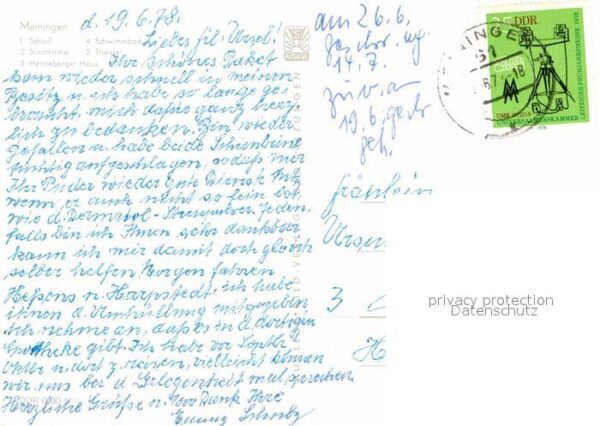 Meiningen
1 Schloß 4 Schwimmbad
2 Stadtkirche 5 Theater
3 Henneberger Haus
d. 19.6.78.
Liebes frl. Ursel!
Ihr schönes Paket
kam wieder schnell in meinen
Besitz u. ich habe so lange ge
braucht, mich dafür ganz herz
lich zu bedanken. Bin wieder
gefallen u. habe beide Schienbeine
tüchtig aufgeschlagen, sodaß mir
Ihr Puder wieder gute Dienste tut
wenn er auch nicht so fein ist
wie d. Dermatol-Streupulver. Jeden
falls bin ich Ihnen sehr dankbar
kann ich mir damit doch gleich
selber helfen. Morgen fahren
n. Harpstedt. ich habe
ihnen d. Umhüllung mitgegeben
ich nehme an, daß es in d. dortigen
Apotheke gibt. Ich habe vor Sept.
Oktbr n. dort z. reisen, vielleicht können
wir uns bei d. Gelegenheit mal sprechen.
Herzliche Grüße u. 1000 Dank Ihre
Emmy
am 26.6.
14.7.
19.6.
Fräulein
Ursu
3
H
DDR
LEIPZIGER FRÜHJAHRSMESSE 1978
UNIVERSALMESSKAMMER
1978
MEININGEN
61
privacy protection
Datenschutz